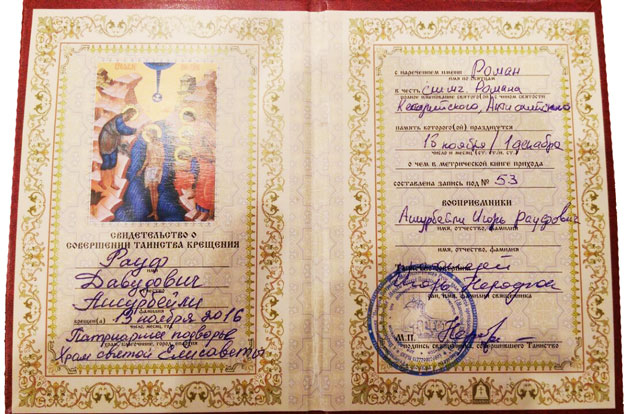 СВИДЕТЕЛЬСТВО О
СОВЕРШЕНИИ ТАИНСТВА КРЕЩЕНИЯ
Рауф
имя
Давудович
отчество
Ашурбейли
фамилия
крещен(а) 13 ноября 2016
число, месяц, год
Патриаршее подворье
храм, город
Храм святой Елисаветы
с наречением имени Роман
имя по святцам
в честь сщмч. Романа
полное именование святого(ой) с чином святости
Кесарийского, Антиохийского
память которого(ой) празднуется
18 ноября / 1 декабря
число и месяц (ст. ст./н. ст.)
о чем в метрической книге прихода
составлена запись под № 53
ВОСПРИЕМНИКИ
Ашурбейли Игорь Рауфович
имя, отчество, фамилия
имя, отчество, фамилия
Игорь
сан, имя, фамилия священника
М.П.
подпись священника, совершившего Таинство